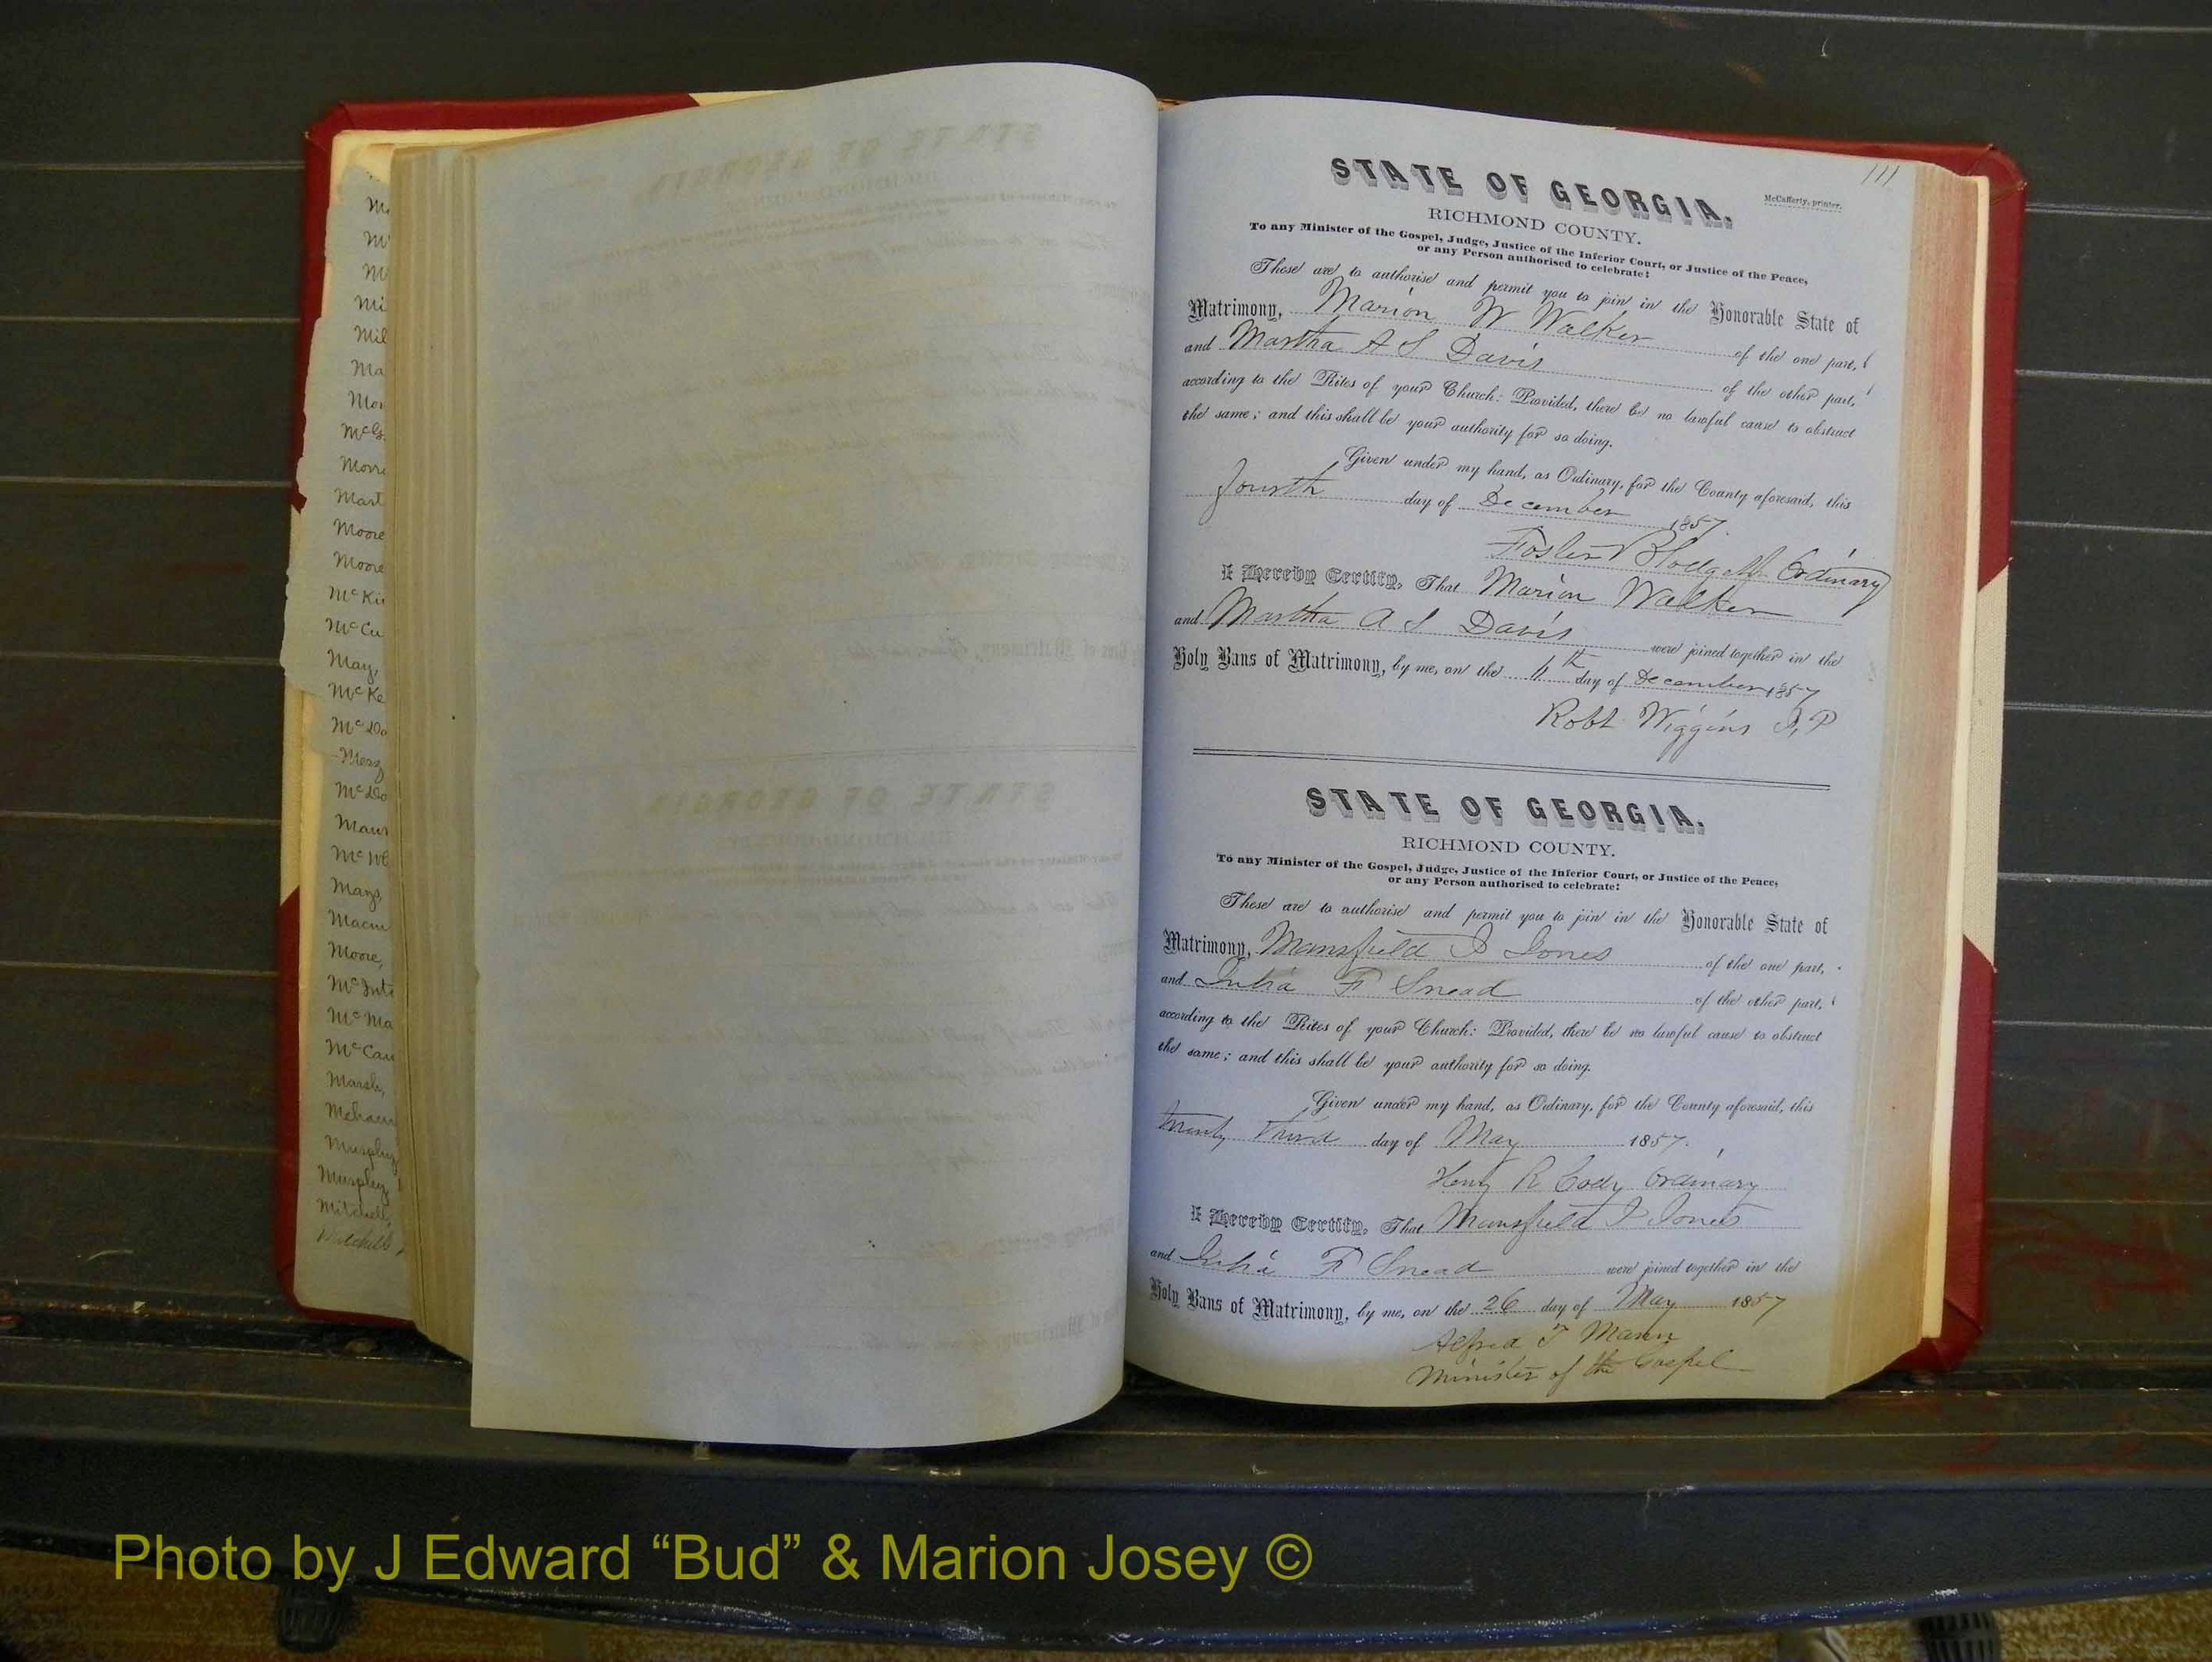 111
STATE OF GEORGIA.
McCafferty, printer.
RICHMOND COUNTY.
To any Minister of the Gospel, Judge, Justice of the Inferior Court, or Justice of the Peace,
or any Person authorised to celebrate:
These are to authorise and permit you to join in the Honorable State of
Matrimony, Marion W Walker of the one part,
and Martha A S Davis of the other part,
according to the Rites of your Church: Provided, there be no lawful cause to obstruct
the same; and this shall be your authority for so doing.
Given under my hand, as Ordinary, for the County aforesaid, this
fourth day of December 1857
Foster Blodgett Ordinary
I Hereby Certify, That Marion Walker
and Martha A S Davis were joined together in the
Holy Bans of Matrimony, by me, on the day of December 1857
Robt Wiggins J,P
STATE OF GEORGIA.
RICHMOND COUNTY.
To any Minister of the Gospel, Judge, Justice of the Inferior Court, or Justice of the Peace,
or any Person authorised to celebrate:
These are to authorise and permit you to join in the Honorable State of
Matrimony, Mansfield P Jones of the one part,
and Julia F Snead of the other part,
according to the Rites of your Church: Provided, there be no lawful cause to obstruct
the same; and this shall be your authority for so doing.
Given under my hand, as Ordinary, for the County aforesaid, this
twenty third day of May 1857.
Henry R Cody Ordinary
I Hereby Certify, That Mansfield P Jones
and Julia F Snead were joined together in the
Holy Bans of Matrimony, by me, on the 26 day of May 1857
Alfred T Mann
Minister of the Gospel
Mil
McG
Mart
Moore
Moore
McKi
McCu
May,
McKe
McDo
McDo
Mays,
Moore,
McInt
McMa
McCau
Marsh,
Murphy
Murphy
Mitchell,
Mitchell
Photo by J Edward “Bud” & Marion Josey ©